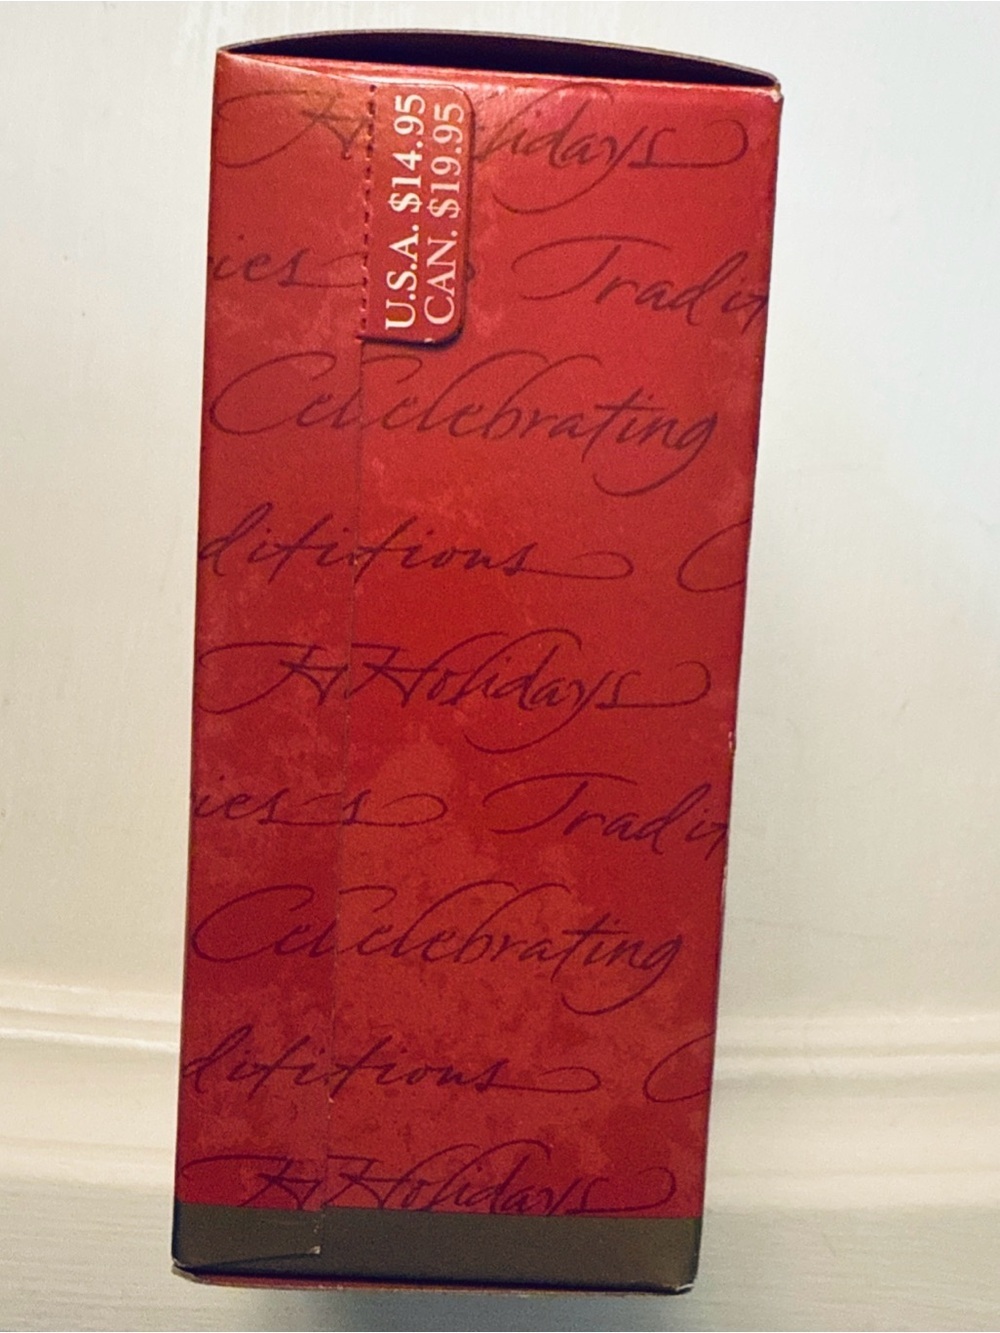 U.S.A. $14.95
CAN. $19.95
H lidays
ies Tradit
Cel elebrating
dititions C
H Holidays
ies s Tradit
Cel elebrating
dititions C
H Holidays